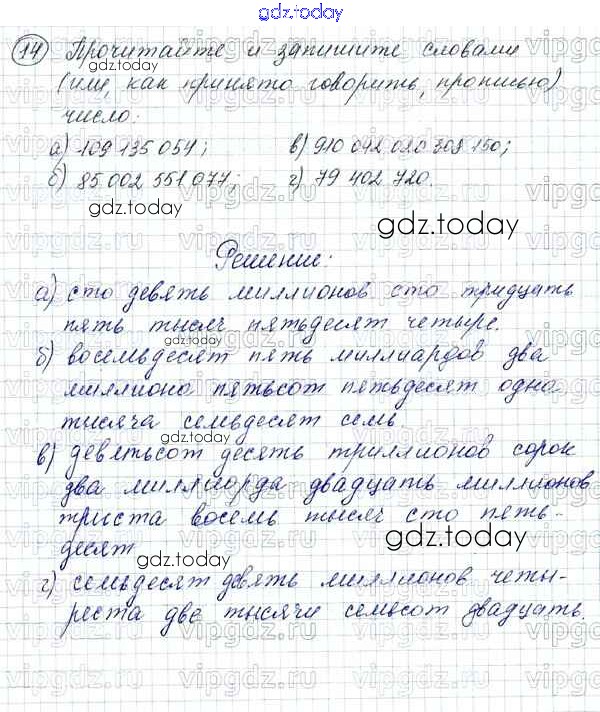 gdz.today
14 Прочитайте и запишите словами
(или, как принято говорить, прописью)
число:
а) 109 135 054; в) 910 042 020 308 150;
б) 85 002 551 077; г) 79 402 720.
gdz.today
gdz.today
Решение:
а) сто девять миллионов сто тридцать
пять тысяч пятьдесят четыре.
б) восемьдесят пять миллиардов два
миллиона пятьсот пятьдесят одна
тысяча семьдесят семь.
gdz.today
в) девятьсот десять триллионов сорок
два миллиарда двадцать миллионов
триста восемь тысяч сто пять-
десят
gdz.today
gdz.today
г) семьдесят девять миллионов четы-
реста две тысячи семьсот двадцать.